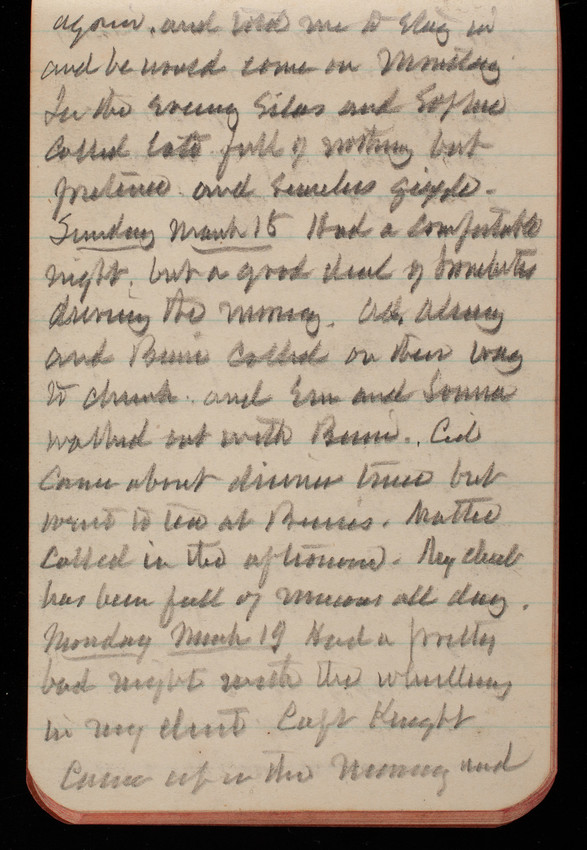 again, and told me to stay in
and he would come on Monday
In the evening Silas and Sophie
Called late full of nothing but
pretence and senseless
Sunday March 18 Had a comfortable
night, but a good deal of
during the morning.
and Bunie Called on their way
to church and Em and
walked out with Bunie. Cid
Came about dinner time but
went to tea at Bunies. Mattie
Called in the afternoon. My chest
has been full of mucous all day.
Monday March 19 Had a pretty
bad night with the whistling
in my chest Capt Knight
Came up in the morning and